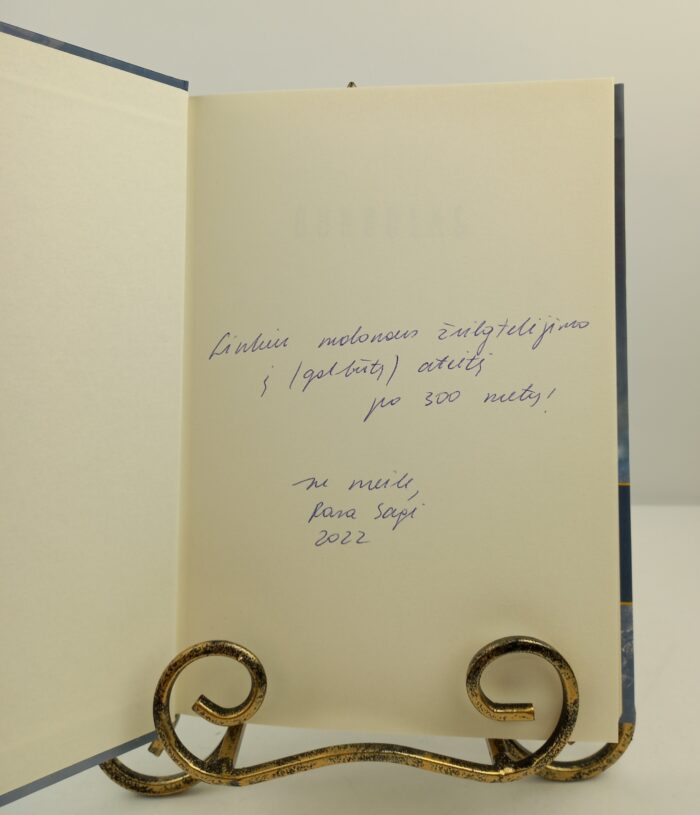 Linkiu malonaus žvilgtelėjimo
į (galbūtį) ateitį
po 300 metų!
su meile,
Rasa Sagė
2022